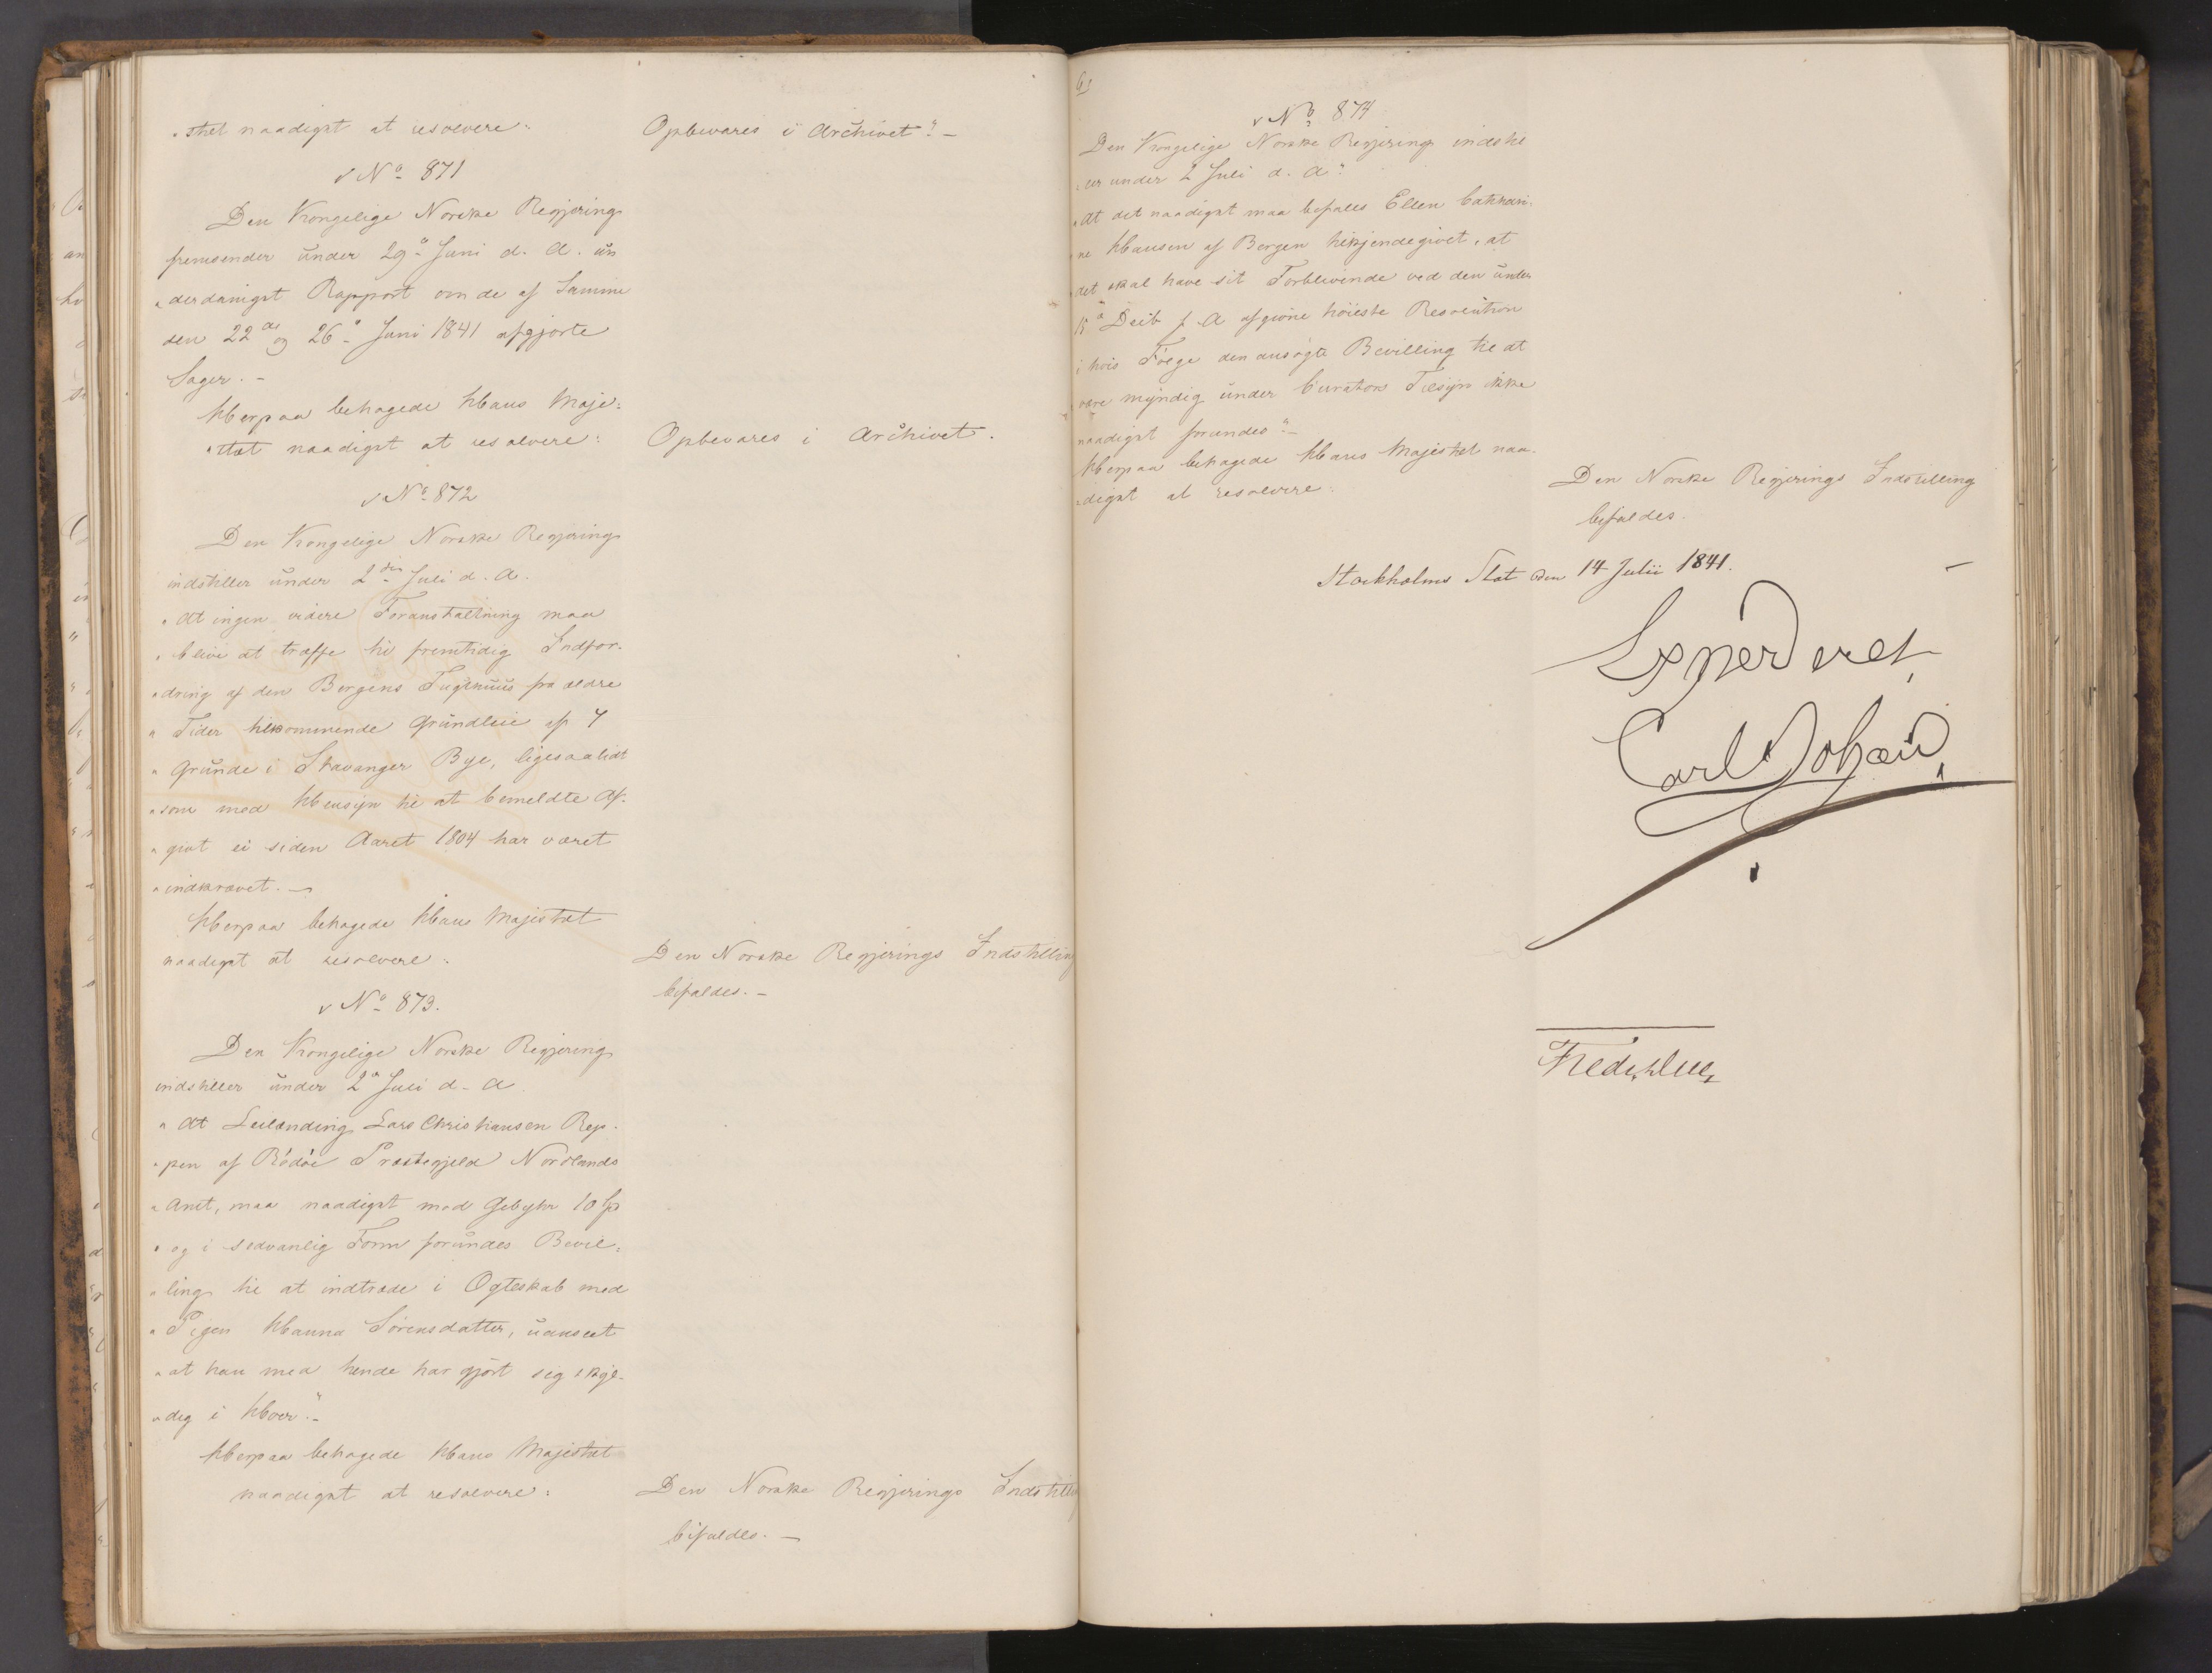 stæt naadigst at resolvere:
Opbevares i Archivet." -
No 871
Den Kongelige Norske Regjering
fremsender under 29de Juni d. A. un
derdanigst Rapport om de af Samme
den 22de og 26de Juni 1841 afgjorte
Sager. -
Herpaa behagede Hans Maje:
stæt naadigst at resolvere:
Opbevares i Archivet.
No 872
Den Kongelige Norske Regjering
indstiller under 2den Juli d. A.
"At ingen videre Foranstaltning maa
"blive at træffe til fremtidig Indfor-
"dring af den Bergens Tugthuus fra ældre
"Tider tilkommende Grundleie af 4
"Grunde i Stavanger Bye, ligesaalidt
"som med Hensyn til at bemeldte Af-
"givt ei siden Aaret 1804 har været
"indkrævet. -
Herpaa behagede Hans Majestæt
naadigst at resolvere:
Den Norske Regjerings Indstilling
bifaldes. -
No 873.
Den Kongelige Norske Regjering
indstiller under 2den Juli d. A
"At Leilænding Lars Christiansen Rep-
"pen af Rødøe Præstegjeld Nordlands
"Amt, maa naadigst mod Gebyhr 10 Sp
"og i sedvanlig Form forundes Bevil=
"ling til at indtræde i Ægteskab med
"Pigen Hanna Sørensdatter, uanseet
"at han med hende har gjort sig skyl-
"dig i Hoer". -
Herpaa behagede Hans Majestæt
naadigst at resolvere:
Den Norske Regjerings Indstilling
bifaldes. -
No 874
Den Kongelige Norske Regjering indstil
ler under 2 Juli d. A:
"At det naadigst maa befales Ellen Cathari-
ne Hansen af Bergen tilkjendegivet, at
det skal have sit Forblivende ved den under
f. A afgivne høieste Resolution
i hvis Følge den ansøgte Bevilling til at
være myndig under Curators Tilsyn ikke
naadigst forundes". -
Herpaa behagede Hans Majestæt naa-
digst at resolvere:
Den Norske Regjerings Indstilling
bifaldes.
Stockholms Slot den 14 Julii 1841.
Expederet
Carl Johan
Fred. Due